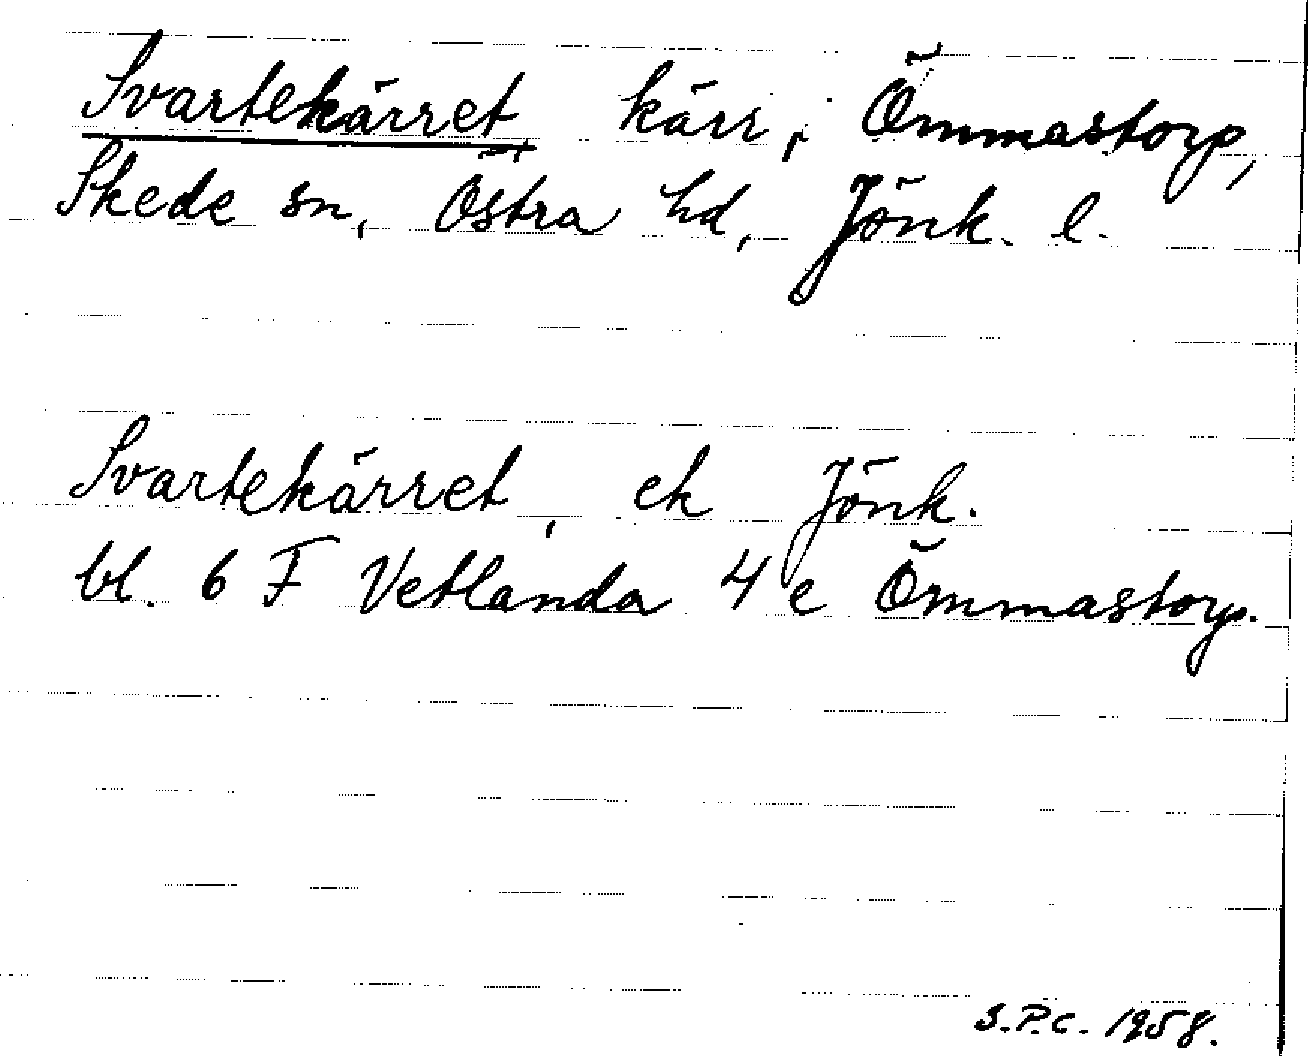 Svartekärret kärr, Ömmastorp,
Skede sn, Östra hd, Jönk. l.
Svartekärret, ek Jönk.
bl. 6 F Vetlanda 4 e Ömmastorp.
S.P.C. 1958.